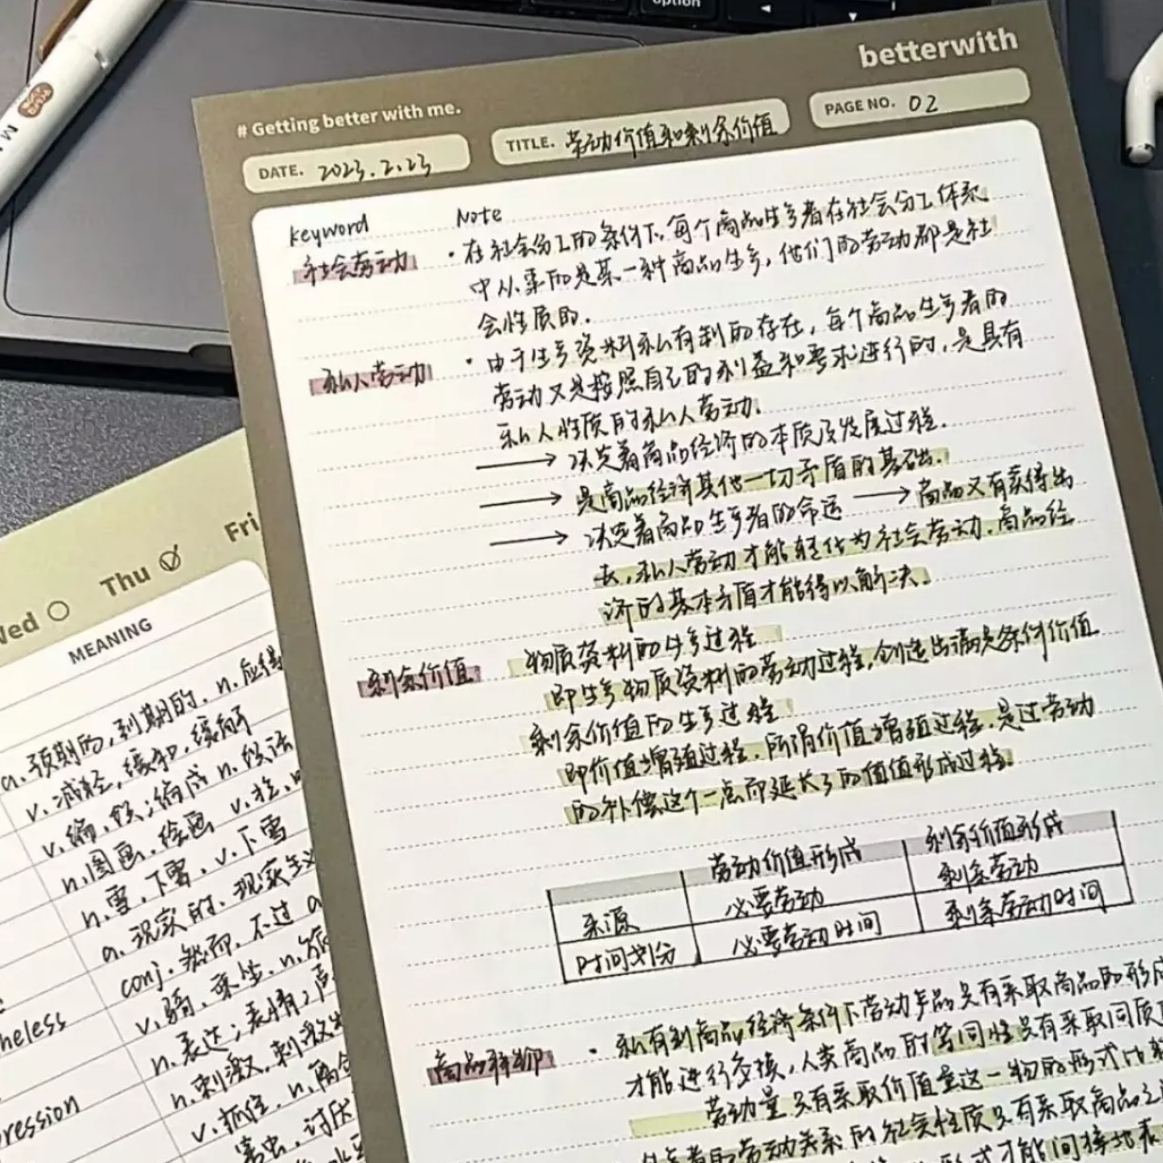 option
betterwith
# Getting better with me.
DATE. 2023.2.23
TITLE. 劳动价值和剩余价值
PAGE NO. 02
keyword
Note
社会劳动
· 在社会分工的条件下,每个商品生产者在社会分工体系
中从事的是某一种商品生产,他们的劳动都是社
会性质的.
私人劳动
· 由于生产资料私有制的存在,每个商品生产者的
劳动又是按照自己的利益和要求进行的,是具有
私人性质的私人劳动.
→ 决定着商品经济的本质及发展过程.
→ 是商品经济其他一切矛盾的基础.
→ 决定着商品生产者的命运 → 商品只有卖得出
去,私人劳动才能转化为社会劳动.商品经
济的基本矛盾才能得以解决.
剩余价值
物质资料的生产过程
即生产物质资料的劳动过程,创造出满足条件价值
剩余价值的生产过程
即价值增殖过程.所谓价值增殖过程.是过劳动
的补偿这个一点而延长了的值值形成过程.
劳动价值形成
剩余价值形成
来源
必要劳动
剩余劳动
时间划分
必要劳动时间
剩余劳动时间
商品拜物
· 私有制商品经济条件下劳动产品只有采取商品的形
才能进行交换,人类商品的等同性只有采取同质
劳动量只有采取价值量这一物的形式比
劳动关系的社会性质只有采取商品之
形式才能间接地表
Wed
Thu
Fri
MEANING
a.预期的,到期的.n.应得
v.减轻,缓和,缓解
v.编,
n.图画.绘画 v.
n.雪.下雪.v.下雪
a.现实的.现实
conj.然而.不过 a
v.骑.乘坐.n.
n.表达;表情;
n.刺激.刺激
v.抓住.n.
害虫.讨厌
heless
ression